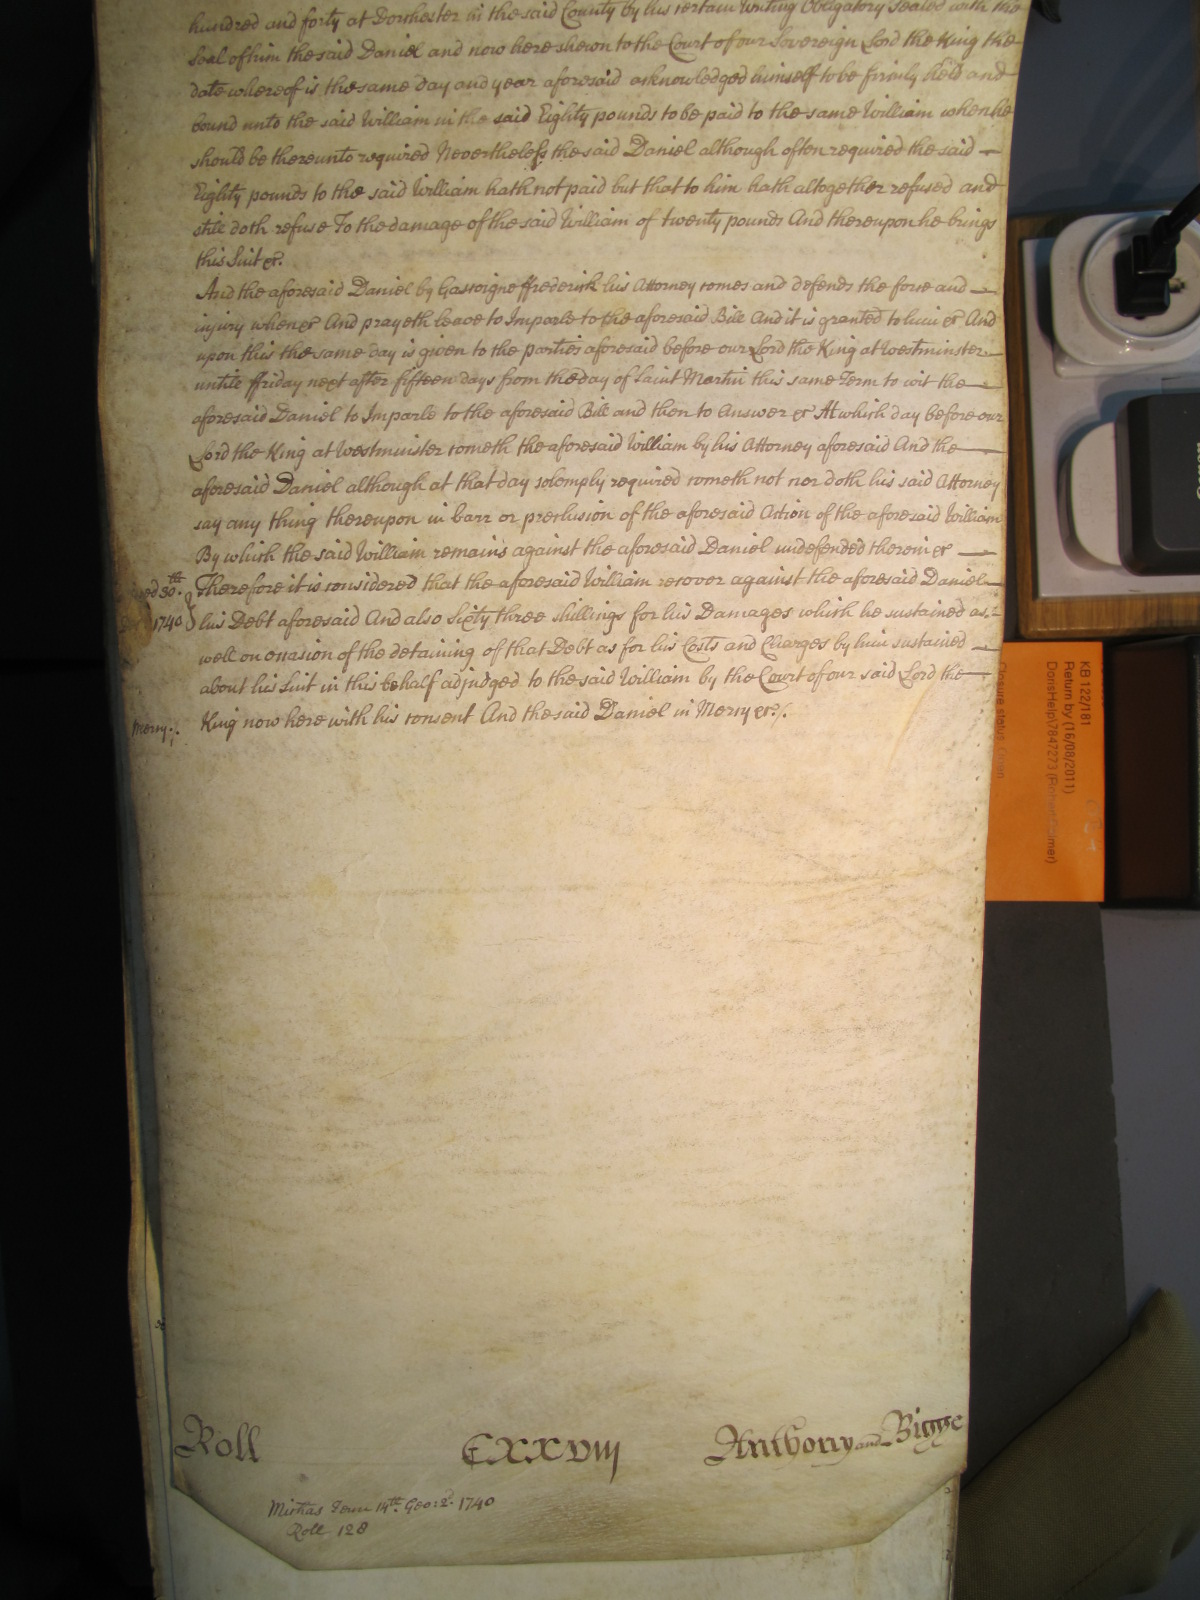 hundred and forty at Dorchester in the said County by his certain writing Obligatory sealed with the
Seal of him the said Daniel and now here shewn to the Court of our Sovereign Lord the King the
date whereof is the same day and year aforesaid acknowledged himself to be firmly held and
bound unto the said William in the said Eighty pounds to be paid to the same William when he
should be thereunto required Nevertheless the said Daniel although often required the said —
Eighty pounds to the said William hath not paid but that to him hath altogether refused and
still doth refuse To the damage of the said William of twenty pounds And thereupon he brings
this Suit &c.
And the aforesaid Daniel by Gascoigne ffrederick his Attorney comes and defends the force and —
injury when &c And prayeth leave to Imparle to the aforesaid Bill And it is granted to him &c And
upon this the same day is given to the parties aforesaid before our Lord the King at Westminster —
untill ffriday next after fifteen days from the day of Saint Martin this same Term to wit the —
aforesaid Daniel to Imparle to the aforesaid Bill and then to Answer &c At which day before our
Lord the King at Westminster cometh the aforesaid William by his Attorney aforesaid And the —
aforesaid Daniel although at that day solemply required cometh not nor doth his said Attorney
say any thing thereupon in barr or preclusion of the aforesaid Action of the aforesaid William
By which the said William remains against the aforesaid Daniel undefended therein &c —
30th. Therefore it is considered that the aforesaid William recover against the aforesaid Daniel —
1740 his Debt aforesaid And also Sixty three shillings for his Damages which he sustained as
well on occasion of the detaining of that Debt as for his Costs and Charges by him sustained —
about his Suit in this behalf adjudged to the said William by the Court of our said Lord the —
Mercy King now here with his consent And the said Daniel in Mercy &c.
Roll CXXVIII Anthony and Bigge
Michas Term 14th. Geo: 2d. 1740
Roll 128
KB 122/181
Return by (16/08/2011)
DorisHelp\7847273 (Robert Palmer)
Closure status: Open